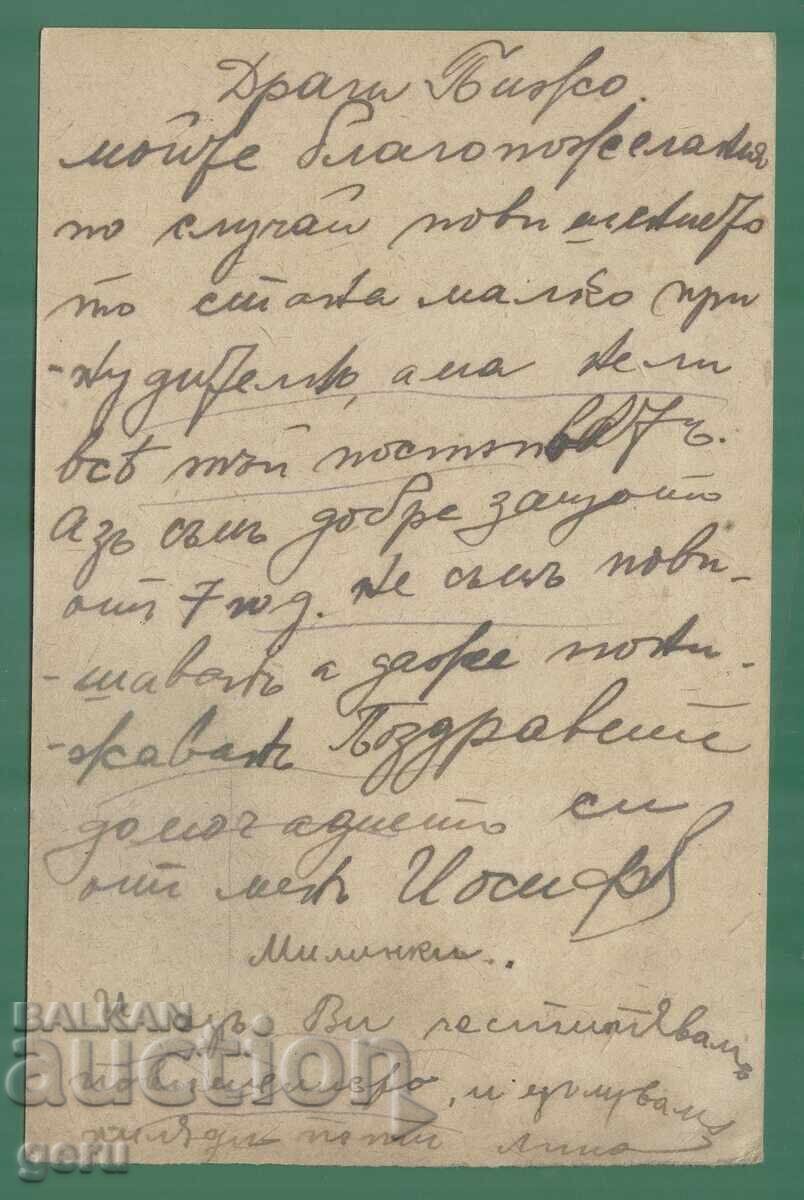 Драги Бижо.
мойте благопожелания
по случай повишението
то стана малко при
-нудителнъ, ама нели
всѣ тъй постъпватъ.
Азъ съмъ добре защото
отъ 7 год. не съмъ пови-
-шаванъ а даже пони-
-жаванъ Поздравете
домочадието си
отъ менъ Иосиф
Милинки..
И азъ Ви честитявамъ
повишението, и цѣлувамъ
хиляди пъти
BALKAN
auction
geru